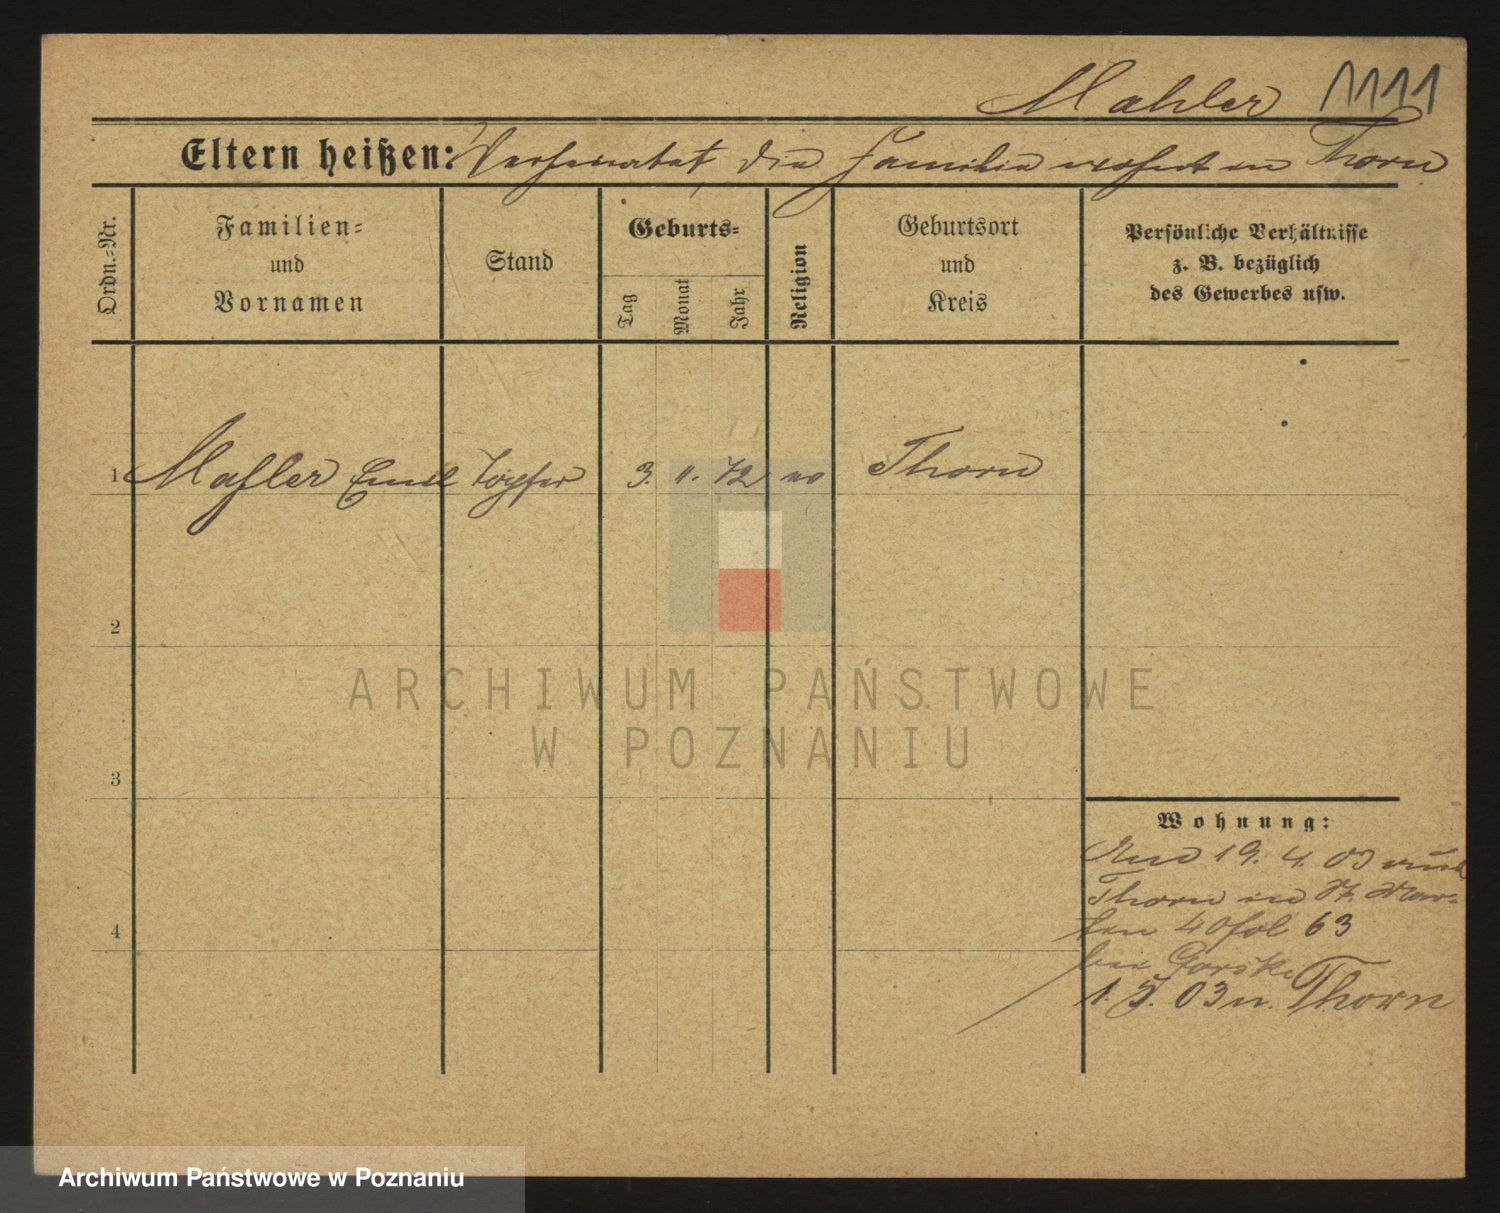 Mahler 1111
Eltern heißen: Verheiratet, die Familie wohnt in Thorn
Ordn.-Nr.
Familien-
und
Vornamen
Stand
Geburts-
Tag
Monat
Jahr
Religion
Geburtsort
und
Kreis
Persönliche Verhältnisse
z. B. bezüglich
des Gewerbes usw.
1 Mahler Emil Töpfer 3. 11. 72 Thorn
2
3
4
Wohnung:
19. 4. 03
Thorn in St. Mar-
tin 40 fol 63
bei Gorski
1. 5. 03 n. Thorn
ARCHIWUM PAŃSTWOWE
W POZNANIU
Archiwum Państwowe w Poznaniu